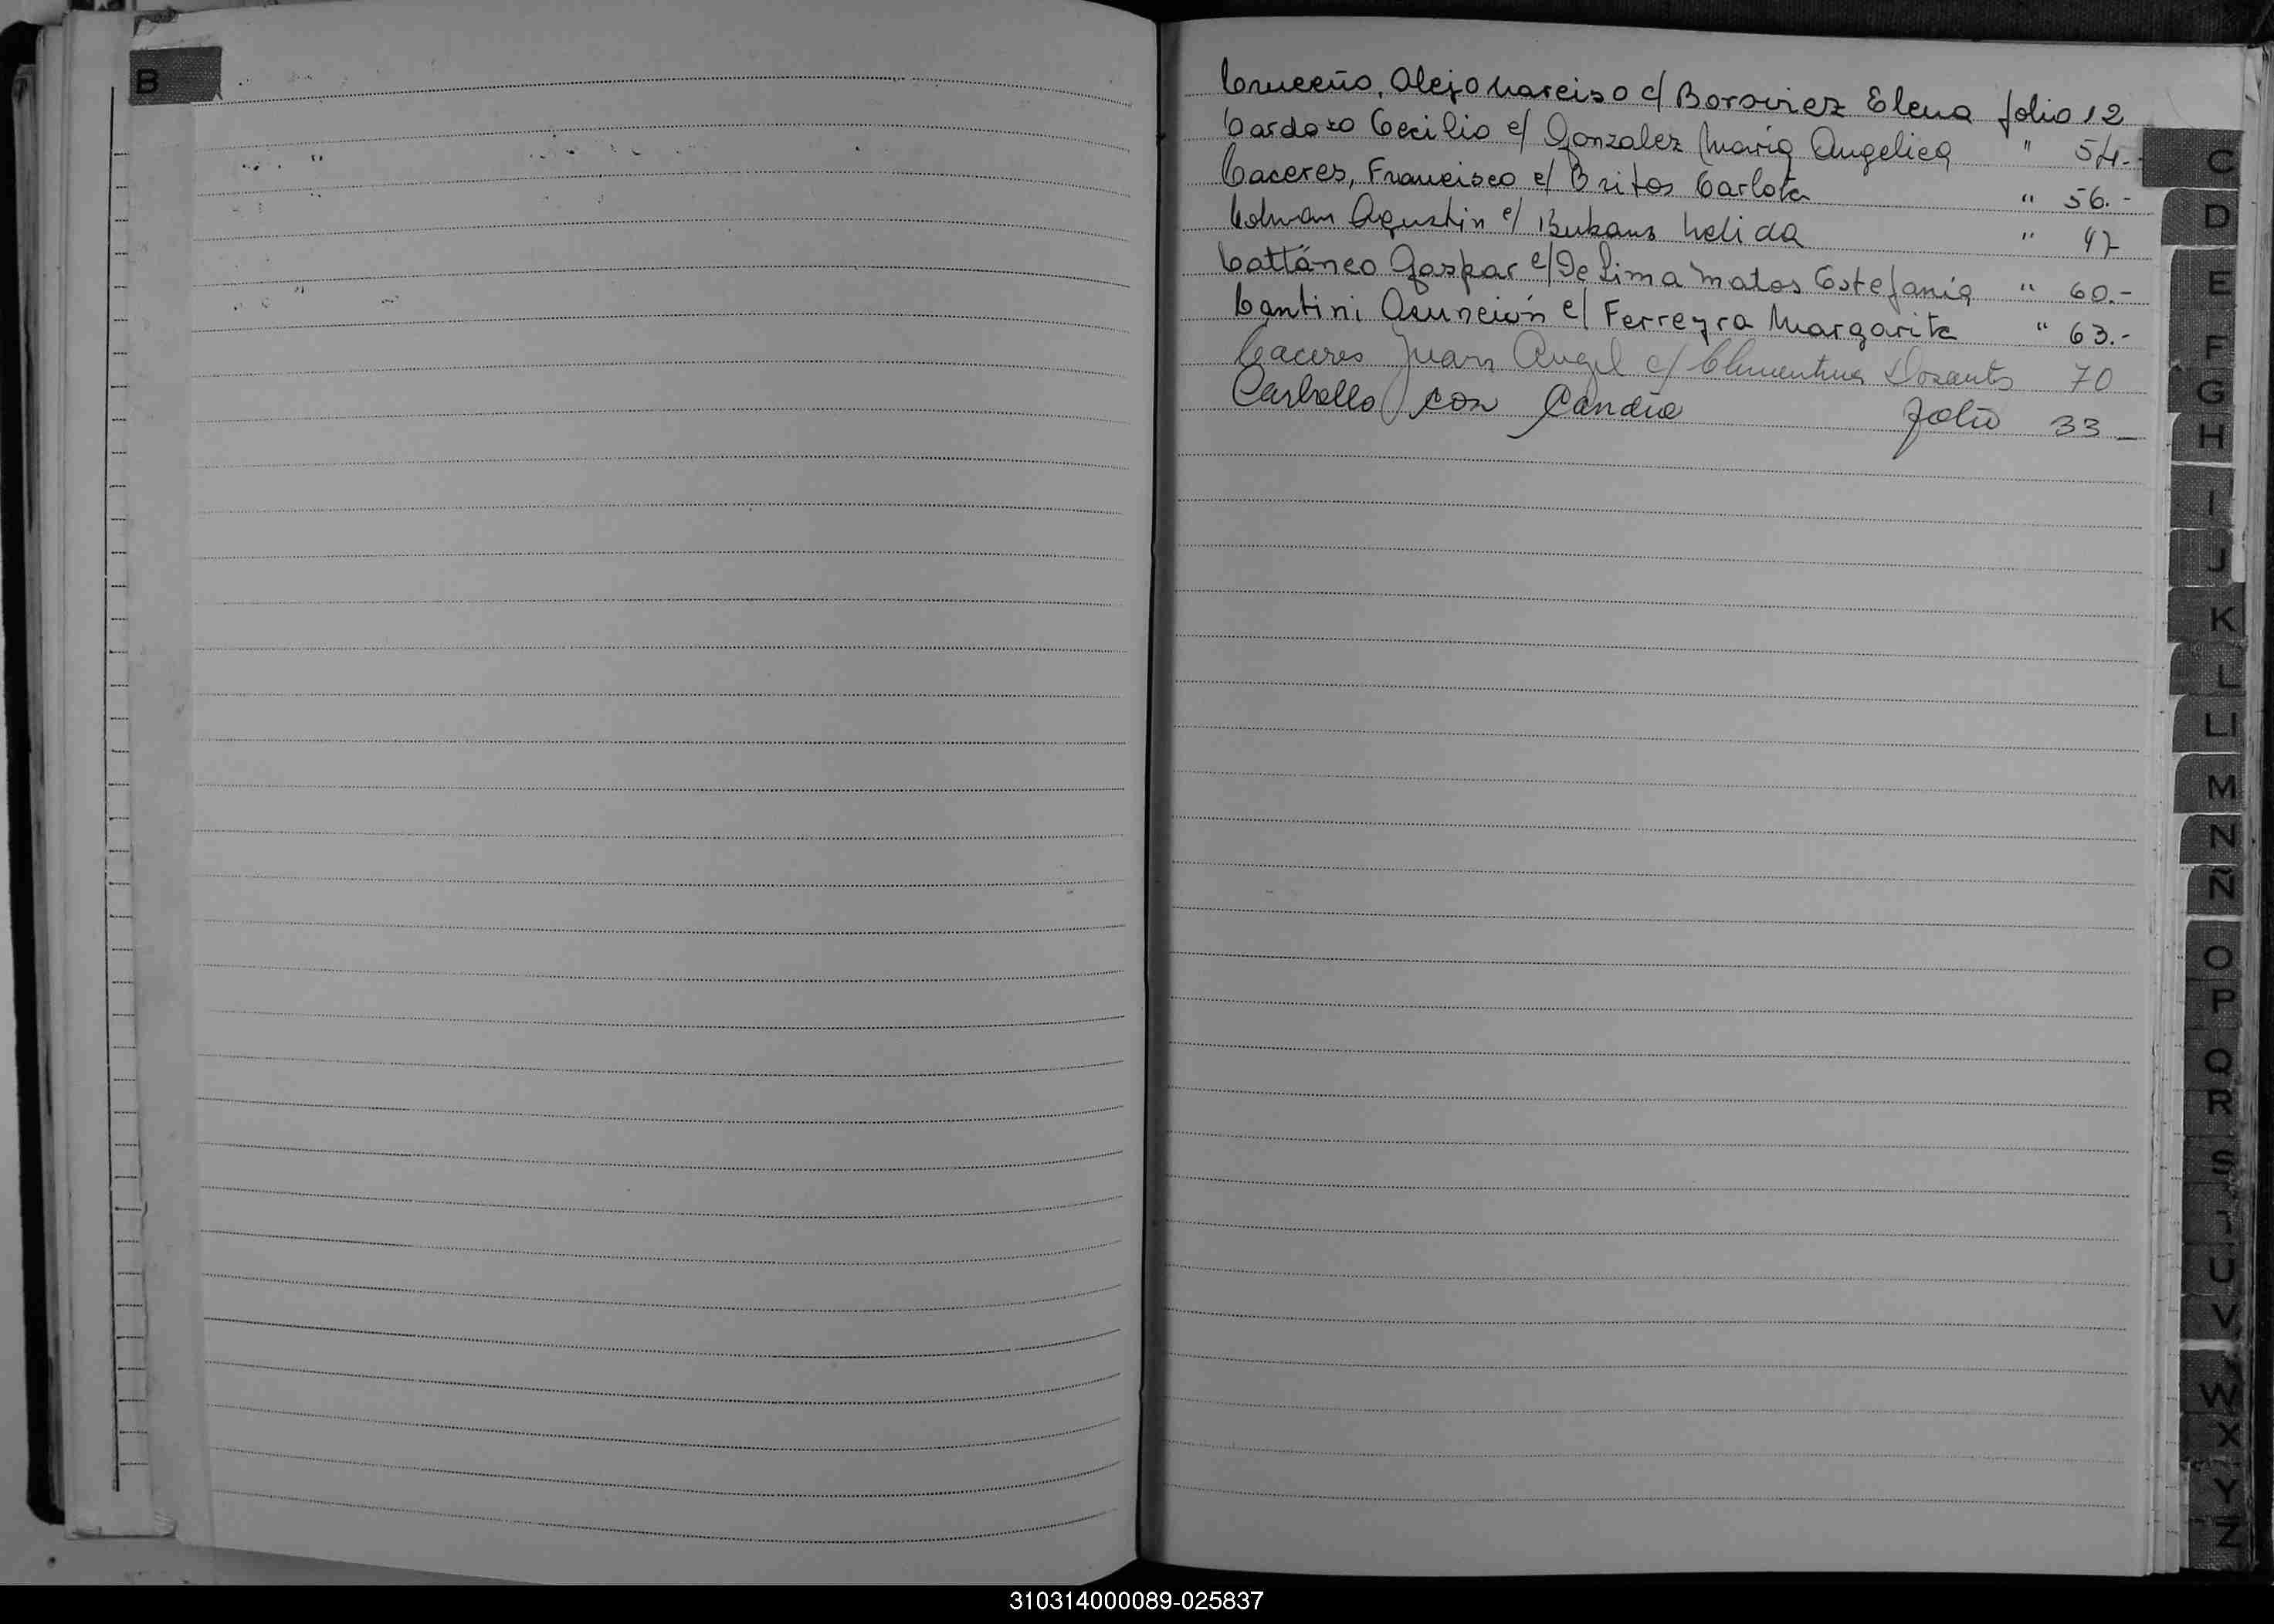 B
Cruceño, Alejo Narciso c/ Borowiez Elena folio 12
Cardozo Cecilio c/ Gonzalez Maria Angelica " 54.-
Caceres, Francisco c/ Britos Carlota " 56.-
Agustin c/ Nelida " 47
Cattáneo Gaspar c/ De Lima Matos Estefania " 60.-
Cantini Asunción c/ Ferreyra Margarita " 63.-
Caceres Juan Angel c/ Clementina Dosantos 70
Carballo con Candia folio 33 -
C
D
E
F
G
H
I
J
K
L
Ll
M
N
Ñ
O
P
Q
R
S
U
V
W
X
Y
Z
310314000089-025837